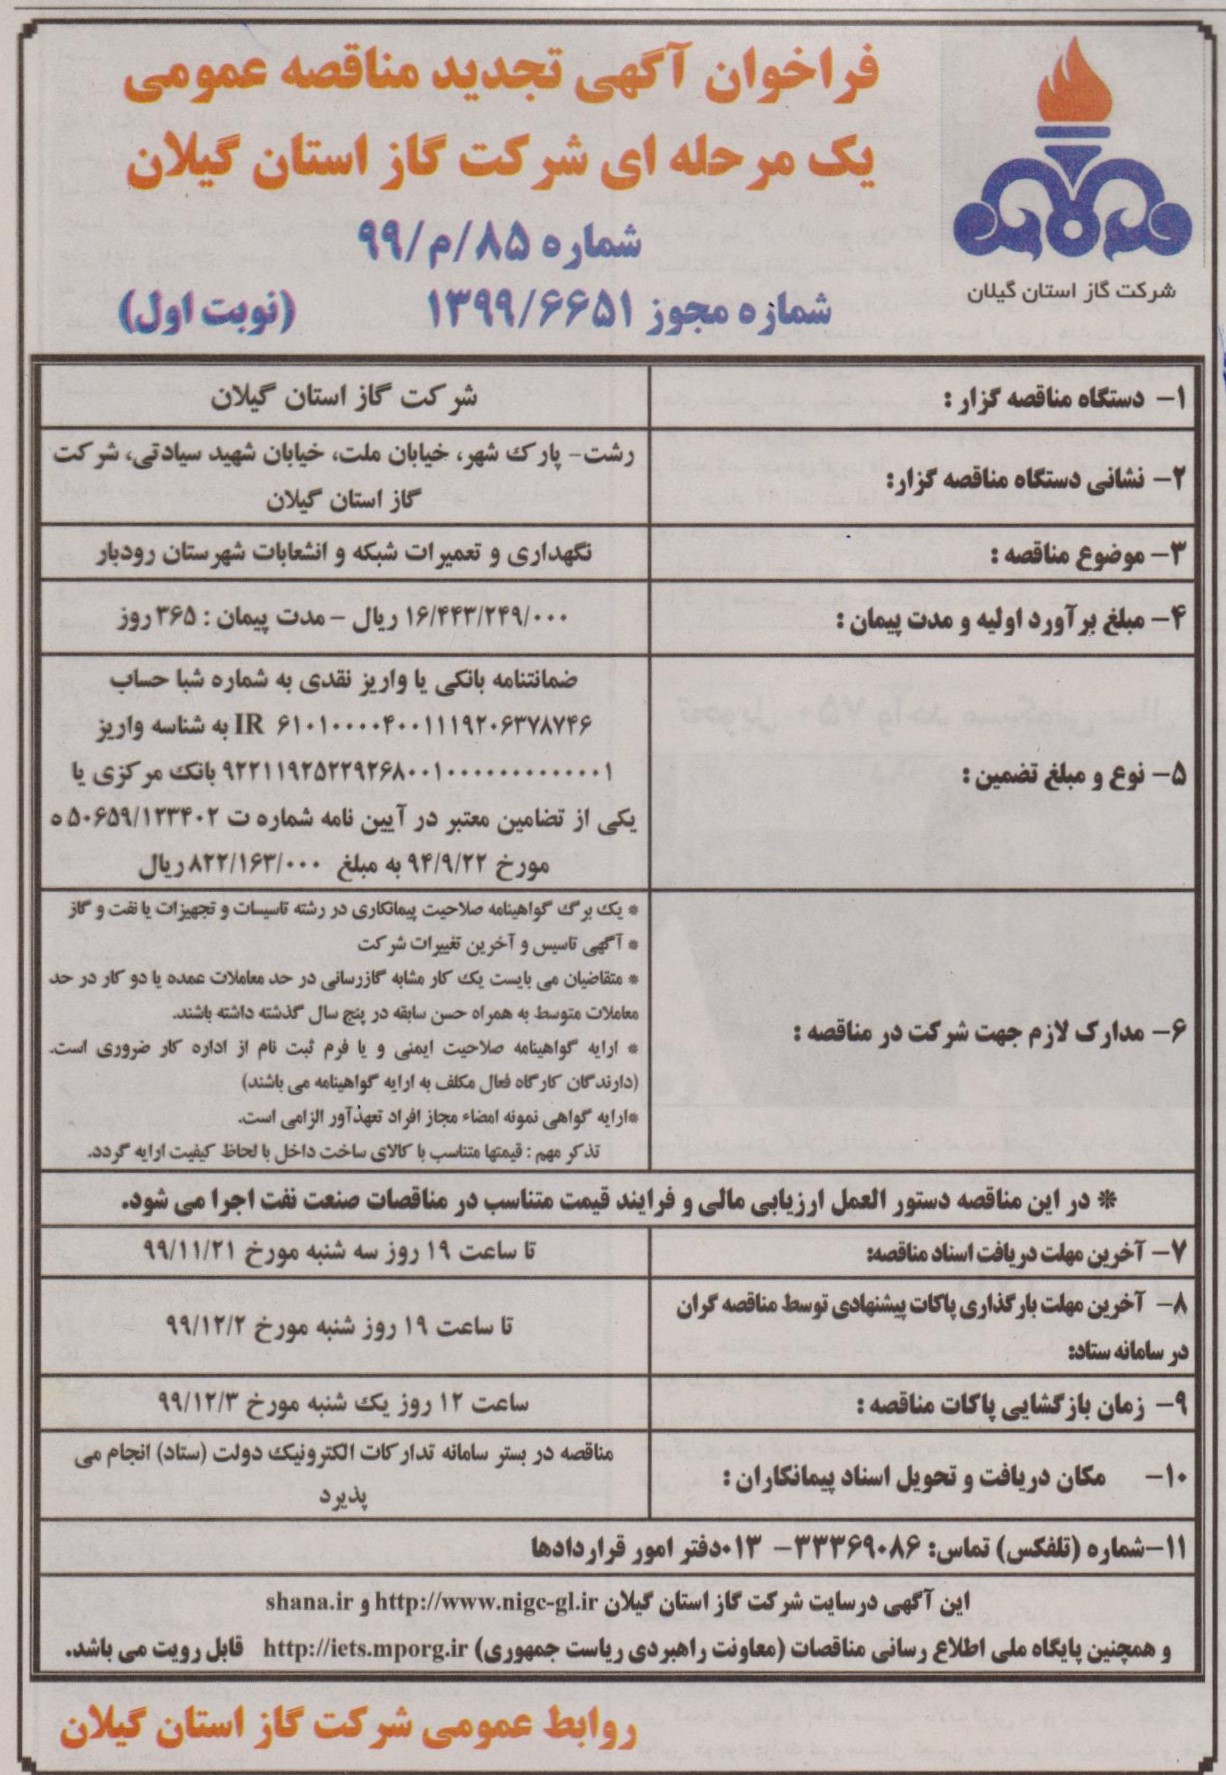 فراخوان آگهی تجدید مناقصه عمومی
یک مرحله ای شرکت گاز استان گیلان
شماره ۸۵/م/۹۹
شماره مجوز ۱۳۹۹/۶۶۵۱ (نوبت اول)
شرکت گاز استان گیلان
۱- دستگاه مناقصه گزار :
شرکت گاز استان گیلان
۲- نشانی دستگاه مناقصه گزار:
رشت- پارک شهر، خیابان ملت، خیابان شهید سیادتی، شرکت
گاز استان گیلان
۳- موضوع مناقصه :
نگهداری و تعمیرات شبکه و انشعابات شهرستان رودبار
۴- مبلغ برآورد اولیه و مدت پیمان :
۱۶/۴۴۳/۲۴۹/۰۰۰ ریال - مدت پیمان : ۳۶۵ روز
۵- نوع و مبلغ تضمین :
ضمانتنامه بانکی یا واریز نقدی به شماره شبا حساب
IR ۶۱۰۱۰۰۰۰۴۰۰۱۱۱۹۲۰۶۳۷۸۷۴۶ به شناسه واریز
۹۲۲۱۱۹۲۵۲۲۹۲۶۸۰۰۱۰۰۰۰۰۰۰۰۰۰۰۰۰۱ بانک مرکزی یا
یکی از تضامین معتبر در آیین نامه شماره ت ۵۰۶۵۹/۱۲۳۴۰۲ ه
مورخ ۹۴/۹/۲۲ به مبلغ ۸۲۲/۱۶۳/۰۰۰ ریال
۶- مدارک لازم جهت شرکت در مناقصه :
* یک برگ گواهینامه صلاحیت پیمانکاری در رشته تاسیسات و تجهیزات یا نفت و گاز
* آگهی تاسیس و آخرین تغییرات شرکت
* متقاضیان می بایست یک کار مشابه گازرسانی در حد معاملات عمده یا دو کار در حد
معاملات متوسط به همراه حسن سابقه در پنج سال گذشته داشته باشند.
* ارایه گواهینامه صلاحیت ایمنی و یا فرم ثبت نام از اداره کار ضروری است.
(دارندگان کارگاه فعال مکلف به ارایه گواهینامه می باشند)
*ارایه گواهی نمونه امضاء مجاز افراد تعهدآور الزامی است.
تذکر مهم : قیمتها متناسب با کالای ساخت داخل با لحاظ کیفیت ارایه گردد.
* در این مناقصه دستور العمل ارزیابی مالی و فرایند قیمت متناسب در مناقصات صنعت نفت اجرا می شود.
۷- آخرین مهلت دریافت اسناد مناقصه:
تا ساعت ۱۹ روز سه شنبه مورخ ۹۹/۱۱/۲۱
۸- آخرین مهلت بارگذاری پاکات پیشنهادی توسط مناقصه گران
در سامانه ستاد:
تا ساعت ۱۹ روز شنبه مورخ ۹۹/۱۲/۲
۹- زمان بازگشایی پاکات مناقصه :
ساعت ۱۲ روز یک شنبه مورخ ۹۹/۱۲/۳
۱۰- مکان دریافت و تحویل اسناد پیمانکاران :
مناقصه در بستر سامانه تدارکات الکترونیک دولت (ستاد) انجام می
پذیرد
۱۱-شماره (تلفکس) تماس: ۳۳۳۶۹۰۸۶- ۰۱۳دفتر امور قراردادها
این آگهی درسایت شرکت گاز استان گیلان http://www.nigc-gl.ir و shana.ir
و همچنین پایگاه ملی اطلاع رسانی مناقصات (معاونت راهبردی ریاست جمهوری) http://iets.mporg.ir قابل رویت می باشد.
روابط عمومی شرکت گاز استان گیلان